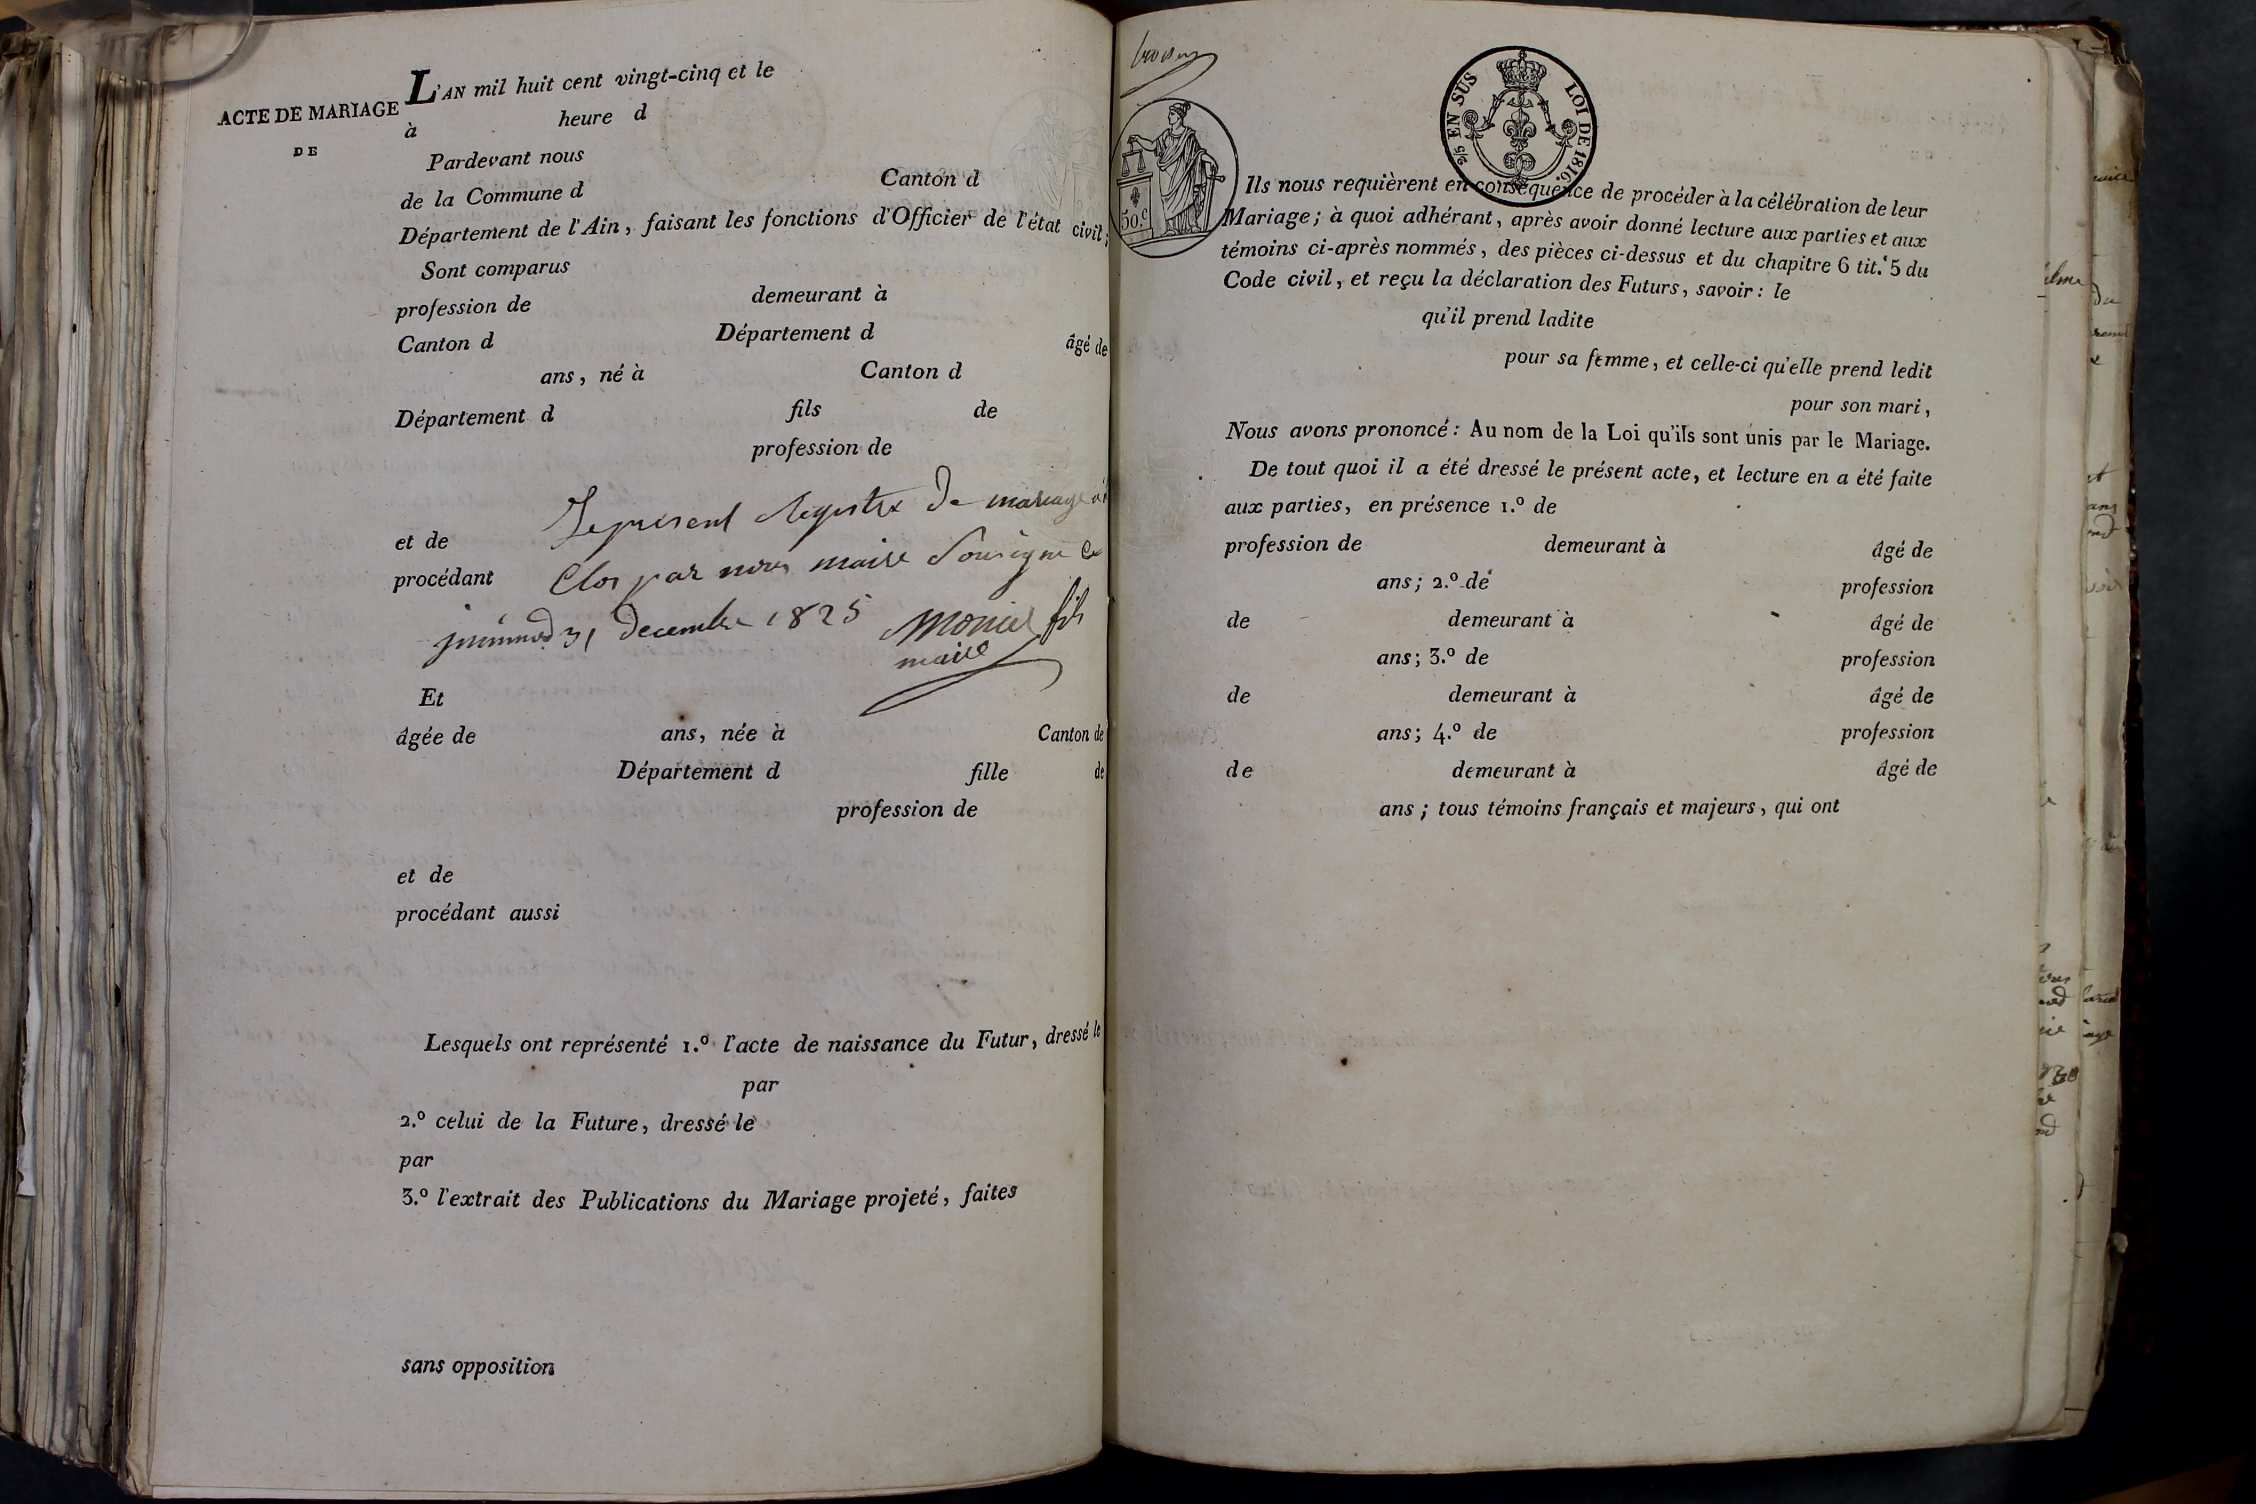 ACTE DE MARIAGE
DE
L'AN mil huit cent vingt-cinq et le
à heure d
Pardevant nous
de la Commune d Canton d
Département de l'Ain, faisant les fonctions d'Officier de l'état civil;
Sont comparus
profession de demeurant à
Canton d Département d âgé de
ans, né à Canton d
Département d fils de
profession de
Le présent Registre de mariage a
et de
Clos par nous maire Soussigné Ce
procédant
31 Decembre 1825 Monier fils
maire
Et
âgée de ans, née à Canton de
Département d fille de
profession de
et de
procédant aussi
Lesquels ont représenté 1.º l'acte de naissance du Futur, dressé le
par
2.º celui de la Future, dressé le
par
3.º l'extrait des Publications du Mariage projeté, faites
sans opposition
2/5 EN SUS LOI DE 1816.
50.c
Ils nous requièrent en conséquence de procéder à la célébration de leur
Mariage; à quoi adhérant, après avoir donné lecture aux parties et aux
témoins ci-après nommés, des pièces ci-dessus et du chapitre 6 tit.e 5 du
Code civil, et reçu la déclaration des Futurs, savoir: le
qu'il prend ladite
pour sa femme, et celle-ci qu'elle prend ledit
pour son mari,
Nous avons prononcé: Au nom de la Loi qu'ils sont unis par le Mariage.
De tout quoi il a été dressé le présent acte, et lecture en a été faite
aux parties, en présence 1.º de
profession de demeurant à âgé de
ans; 2.º de profession
de demeurant à âgé de
ans; 3.º de profession
de demeurant à âgé de
ans; 4.º de profession
de demeurant à âgé de
ans; tous témoins français et majeurs, qui ont